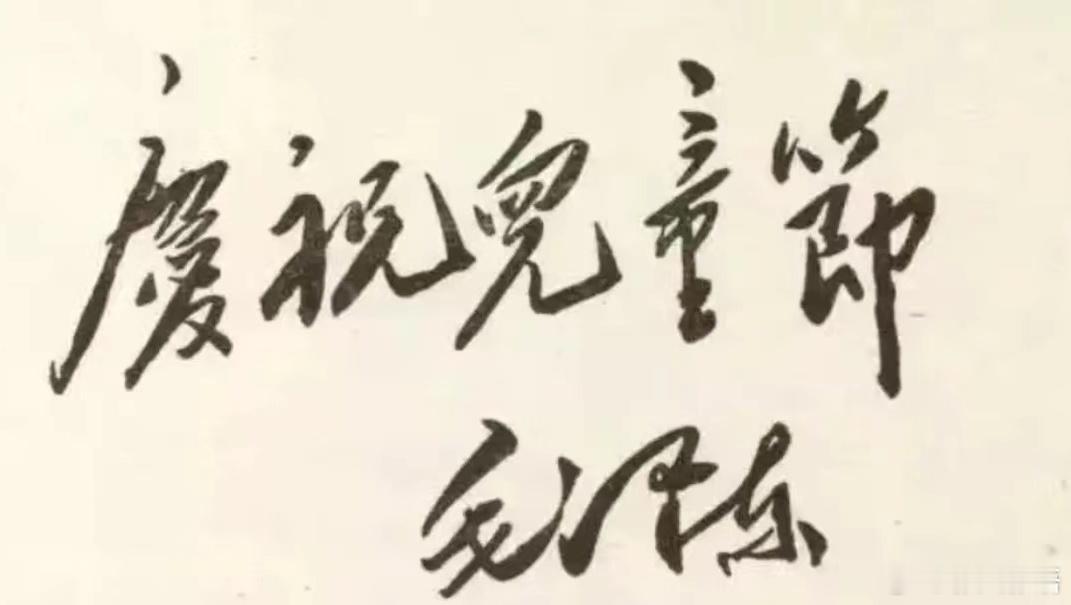 慶祝兒童節
毛泽东